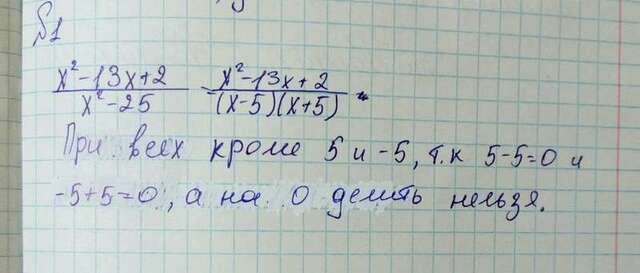 №1
x²-13x+2/x²-25 x²-13x+2/(x-5)(x+5) -
При всех кроме 5 и -5, т.к 5-5=0 и
-5+5=0, а на 0 делить нельзя.